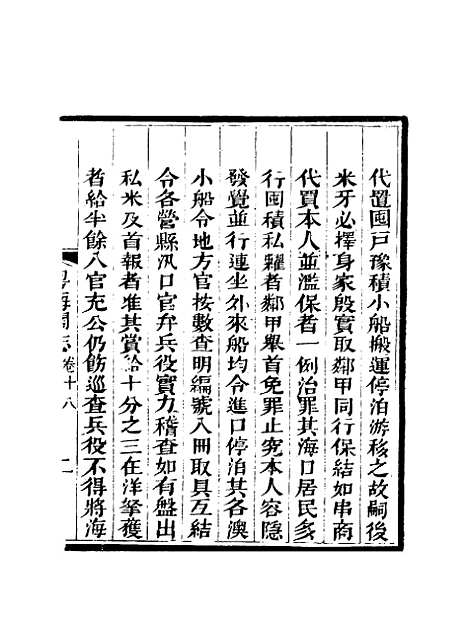 代置囤戸豫積小船搬運停泊游移之故嗣後
米牙必擇身家殷實取鄰甲同行保結如串商
代買本人並濫保者一例治罪其海口居民多
行囤積私糶者鄰甲舉首免罪止究本人容隱
發覺並行連坐外來船均令進口停泊其各澳
小船令地方官按數查明編號入冊取具互結
令各營縣汛口官弁兵役實力稽查如有盤出
私米及首報者准其賞給十分之三在洋拏獲
者給半餘入官充公仍飭巡查兵役不得將海
粵海關志 卷十八 二